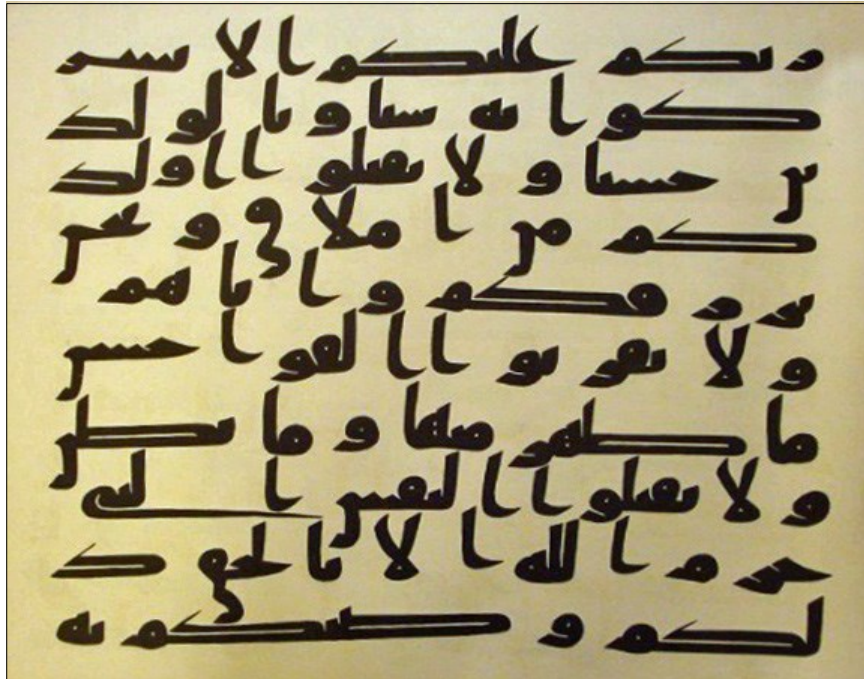 ربكم عليكم الا تشر
كوا به شيا وبالولد
ين حسنا ولا تقتلوا اولد
كم من املاق و نحن
نرزقكم واياهم
ولا تقربوا الفواحش
ما ظهر منها وما بطن
ولا تقتلوا النفس التي
حرم الله الا بالحق ذ
لكم وصيكم به